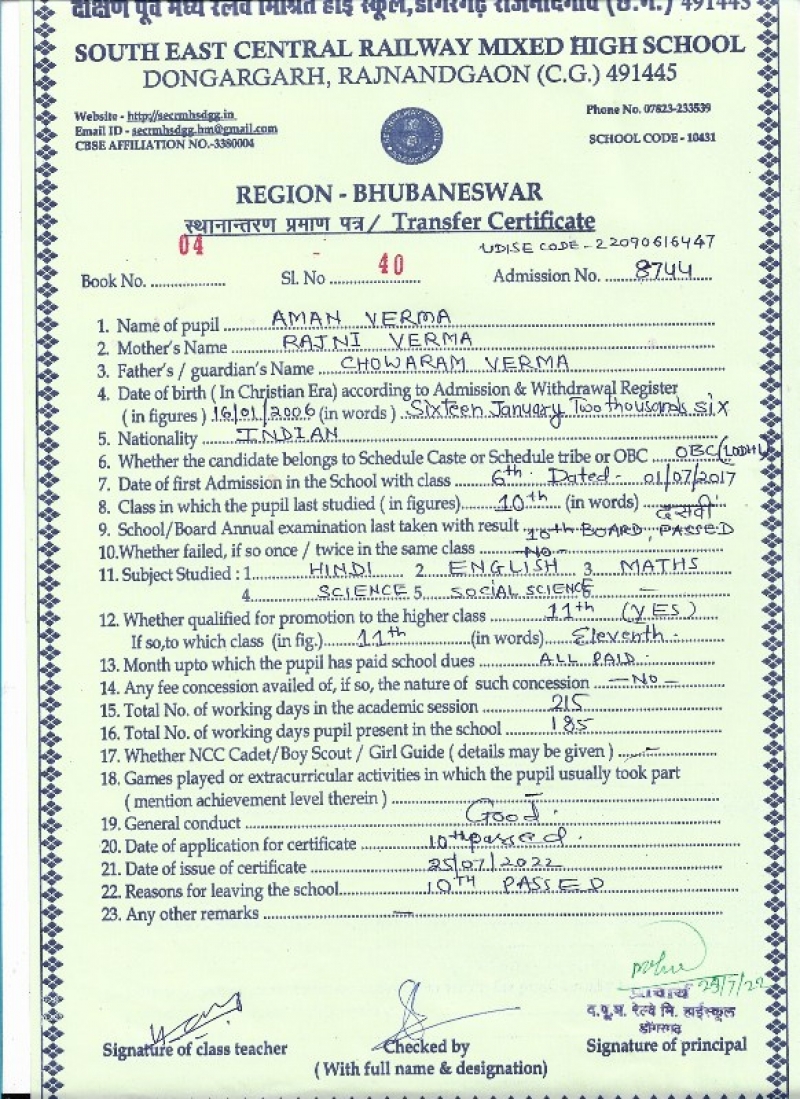 दक्षिण पूर्व मध्य रेलवे मिश्रित हाई स्कूल, डोंगरगढ़ राजनांदगांव (छ.ग.) 491445
SOUTH EAST CENTRAL RAILWAY MIXED HIGH SCHOOL
DONGARGARH, RAJNANDGAON (C.G.) 491445
Website - http://secrmhsdgg.in
Phone No. 07823-233539
Email ID - secrmhsdgg.hm@gmail.com
CBSE AFFILIATION NO.-3380004
SCHOOL CODE - 10431
REGION - BHUBANESWAR
स्थानान्तरण प्रमाण पत्र / Transfer Certificate
UDISE CODE - 22090616447
Book No. 04 Sl. No 40 Admission No. 8744
1. Name of pupil AMAN VERMA
2. Mother's Name RAJNI VERMA
3. Father's / guardian's Name CHOWARAM VERMA
4. Date of birth ( In Christian Era) according to Admission & Withdrawal Register
( in figures ) 16/01/2006 (in words ) Sixteen January Two thousands six
5. Nationality INDIAN
6. Whether the candidate belongs to Schedule Caste or Schedule tribe or OBC OBC (LODHI)
7. Date of first Admission in the School with class 6th. Dated - 01/07/2017
8. Class in which the pupil last studied ( in figures) 10th (in words) दसवीं
9. School/Board Annual examination last taken with result 10th BOARD, PASSED
10.Whether failed, if so once / twice in the same class -No-
11. Subject Studied : 1. HINDI 2 ENGLISH 3. MATHS
4. SCIENCE 5. SOCIAL SCIENCE -
12. Whether qualified for promotion to the higher class 11th (YES)
If so,to which class (in fig.) 11th (in words) Eleventh.
13. Month upto which the pupil has paid school dues ALL PAID.
14. Any fee concession availed of, if so, the nature of such concession -No-
15. Total No. of working days in the academic session 215
16. Total No. of working days pupil present in the school 185
17. Whether NCC Cadet/Boy Scout / Girl Guide ( details may be given ) -
18. Games played or extracurricular activities in which the pupil usually took part
( mention achievement level therein )
19. General conduct Good.
20. Date of application for certificate 10th passed.
21. Date of issue of certificate 25/07/2022
22. Reasons for leaving the school 10TH PASSED
23. Any other remarks -
25/7/22
प्राचार्य
द.पू.म. रेल्वे मि. हाईस्कूल
डोंगरगढ़
Signature of class teacher Checked by Signature of principal
(With full name & designation)